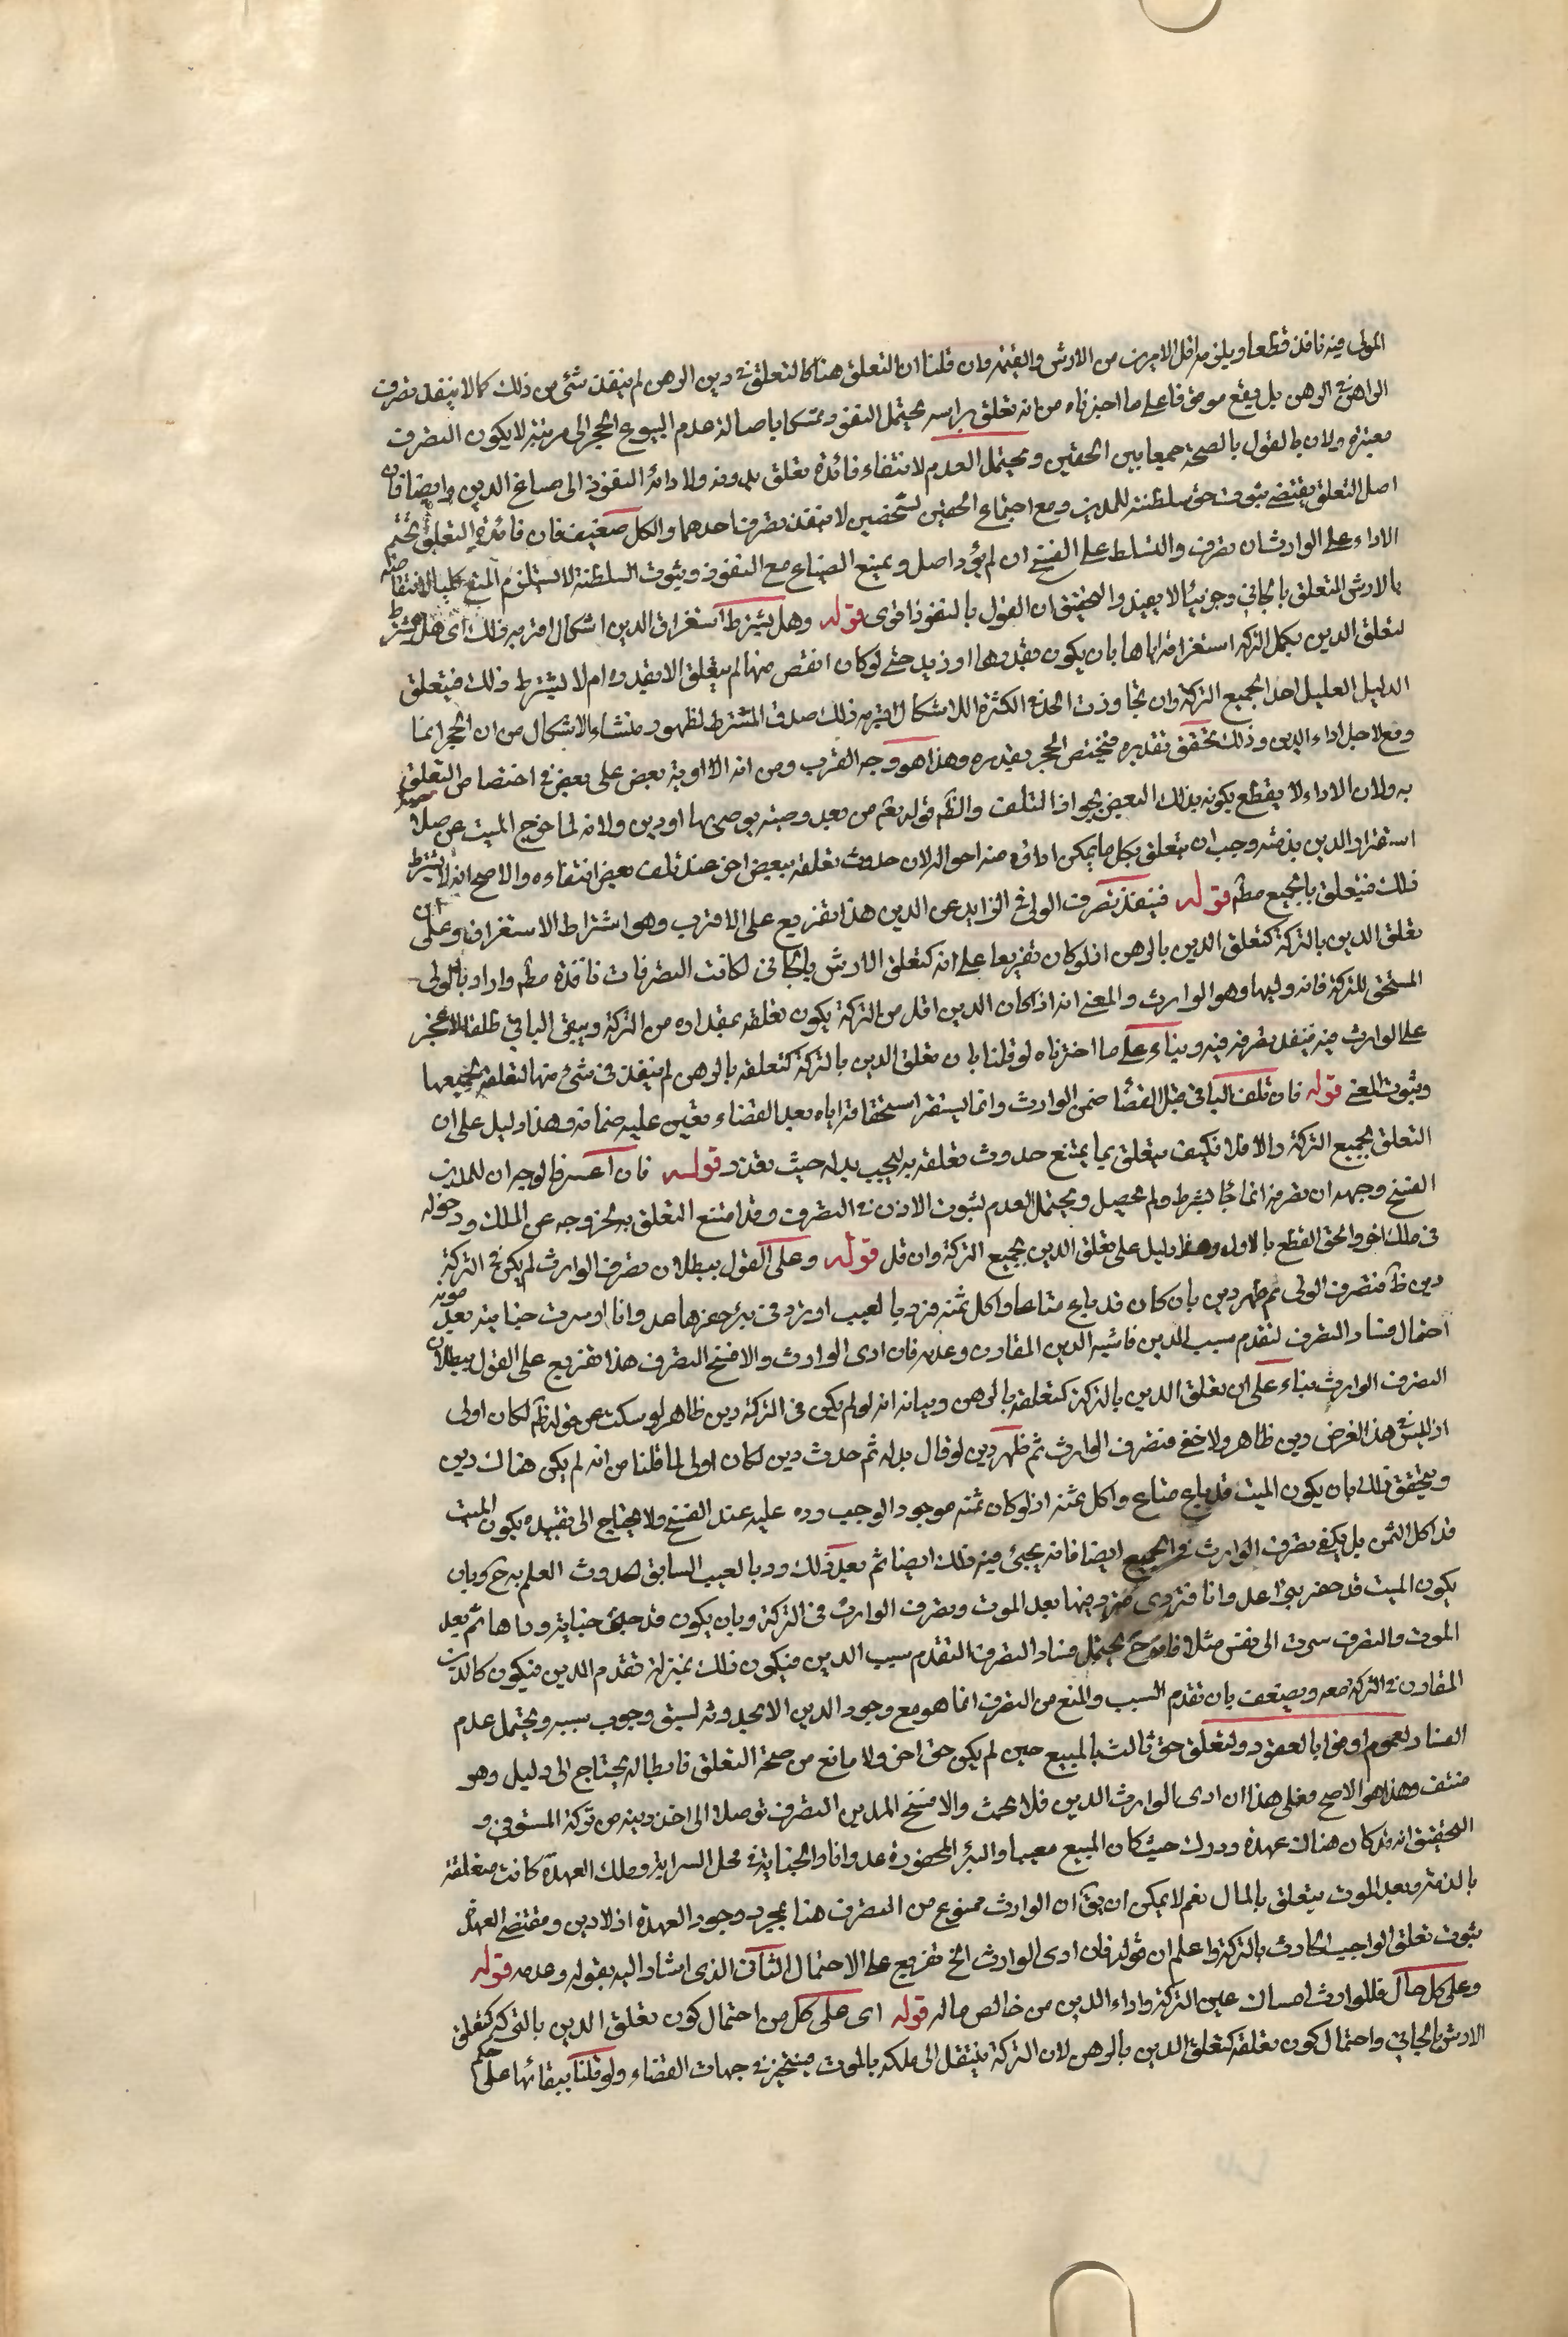 المولى فيه نافذ قطعا ويلزمه اقل الامرين من الارش والقيمة وان قلنا ان التعلق هنا كالتعلق في دين الرهن لم ينفذ شئ من ذلك كما لا ينفذ تصرف
الراهن في الرهن بل يقع موقوفا على ما اخترناه من انه تعلق براسه يحتمل النفوذ تمسكا باصالة عدم البلوغ الحجر الى مرتبة لا يكون التصرف
معتبرة ولان بالقول بالصحة جمعا بين الحقين ويحتمل العدم لانتفاء فائدة تعلق بدونه ولاداء النفوذ الى ضياع الدين وايضا فان
اصل التعلق يقتضي ثبوت حق سلطنته للمدين ومع اجتماع الحقين لشخصين لا ينفذ تصرف احدهما والكل ضعيف فان فائدة التعلق تحتم
الاداء على الوارث ان تصرف والتسلط على الفسخ ان لم يؤد اصل ويمنع الضياع مع النفوذ وثبوت السلطنة لا يستلزم المنع كليا لانتقاضه
بالارش المتعلق بالجاني وجزئيا لا يفيد والتحقيق ان القول بالنفوذ اقوى قوله وهل يشترط استغراق الدين اشكال اقربه ذلك اى هل يشترط
لتعلق الدين بكل التركة استغراقه اياها بان يكون بقدرها او ازيد حتى لو كان انقص منها لم يتعلق الا بقدره ام لا يشترط ذلك فيتعلق
الدليل القليل احد الجميع التركة وان تجاوزت الحد في الكثرة اشكال اقربه ذلك صدق المشترط لظهوره منشاء الاشكال من ان الحجر انما
وقع لاجل اداء الدين وذلك يتحقق بقدره فيختص الحجر بقدره وهذا هو وجه القرب ومن انه لا اولوية بعض على بعض في اختصاص التعلق
به ولان الاداء لا يقطع بكونه بذلك البعض بجواز التلف والظم قوله تعم من بعد وصية يوصى بها او دين ولانه لما خرج الميت عن صلاحية
استقرار الدين بذمته وجب ان يتعلق بكل ما يمكن اداؤه منه احواله لان حدوث تعلقه ببعض اخر عند تلف بعض انتفاءه والاصح انه لا يشترط
ذلك فيتعلق بالجميع مطم قوله فينفذ تصرف الولي في الزايد عن الدين هذا تفريع على الاقرب وهو اشتراط الاستغراق وعلى ان
تعلق الدين بالتركة كتعلق الدين بالرهن اذ لو كان تفريعا على انه كتعلق الارش بالجاني لكانت التصرفات نافذة مطم واراد بالولي
المستحق للتركة فانه وليها وهو الوارث والمعنى انه اذا كان الدين اقل من التركة يكون تعلقه بمقداره من التركة ويبقى الباقي طلقا لا حجر
على الوارث فيه فينفذ تصرفه فيه وبناء على ما اخترناه لو قلنا بان تعلق الدين بالتركة كتعلقه بالرهن لم ينفذ في شئ منها لتعلقه بجميعها
وثبوت المعنى قوله فان تلف الباقي قبل القضاء ضمن الوارث وانما يستقر استحقاقه اياه بعد القضاء تعين عليه ضمانه وهذا دليل على ان
التعلق بجميع التركة والا فلا فكيف يتعلق بما يمتنع حدوث تعلقه به ليجب بدله حيث تعذر قوله فان اعسر فالوجه ان للمدين
الفسخ وجهه ان تصرفه انما جاء بشرط ولم يحصل ويحتمل العدم لثبوت الاذن في التصرف وقد امتنع التعلق به بخروجه عن الملك ودخوله
في ملك اخر والحق القطع بالاول وهذا دليل على تعلق الدين بجميع التركة وان قل قوله وعلى القول ببطلان تصرف الوارث لو لم يكن في التركة
دين ظ فتصرف الولي ثم ظهر دين بان كان قد باع متاعا واكل ثمنه فرد بالعيب او تردى في بئر حفرها عدوانا او سرت جنايته بعد موته
احتمال فساد التصرف لتقدم سبب الدين فاشبه الدين المقارن وعدمه فان ادى الوارث والا فسخ التصرف هذا تفريع على القول ببطلان
التصرف الوارث بناء على ان تعلق الدين بالتركة كتعلقه بالرهن وبيانه انه لو لم يكن في التركة دين ظاهر لو سكت عن قوله ظم لكان اولى
اذ ليس في هذا الفرض دين ظاهر ولا خفي فتصرف الوارث ثم ظهر دين لو قال بدله ثم حدث دين لكان اولى لما قلنا من انه لم يكن هناك دين
ويتحقق ذلك بان يكون الميت قد باع متاع واكل ثمنه اذ لو كان ثمنه موجود الوجب رده عليه عند الفسخ ولا يحتاج الى تقييده بكون الميت
قد اكل الثمن بل يكفي تصرف الوارث في الجميع ايضا فانه يجيئ فيه ذلك ايضا ثم بعد ذلك رد بالعيب السابق لحدوث العلم به ح وبان
يكون الميت قد حفر بئرا عدوانا فتردى فيها بعد الموت وتصرف الوارث في التركة وبان يكون قد جنى جناية وداها ثم بعد
الموت والتصرف سرت الى نفس مثلا فانه ح يحتمل فساد التصرف لتقدم سبب الدين فيكون ذلك بمنزلة تقدم الدين فيكون كالدين
المقارن في التركة معه ويضعف بان تقدم السبب والمنع من التصرف انما هو مع وجود الدين الا بحدوثه لسبق وجوب سببه ويحتمل عدم
الفساد لعموم اوفوا بالعقود ولتعلق حق ثالث بالمبيع حين لم يكن حق اخر ولا مانع من صحة التعلق فابطاله يحتاج الى دليل وهو
منتف وهذا هو الاصح فعلى هذا ان ادى الوارث الدين فلا بحث والا فسخ المدين التصرف توصلا الى اخذ دينه من تركة المستوفى و
التحقيق انه قد كان هناك عهدة ودرك حيث كان المبيع معيبا والبئر المحفورة عدوانا والجناية في محل السراية وتلك العهدة كانت متعلقة
بالذمة وبعد الموت يتعلق بالمال نعم لا يمكن ان يق ان الوارث ممنوع من التصرف هنا بمجرد وجود العهدة اذ لا دين ومقتضى العهدة
ثبوت تعلق الواجب الحادث بالتركة واعلم ان قوله فان ادى الوارث الخ تفريع على الاحتمال الثاني الذي اشار اليه بقوله وعدمه قوله
وعلى كل حال فللوارث امساك عين التركة واداء الدين من خالص ماله قوله اى على كل من احتمال كون تعلق الدين بالتركة كتعلق
الارش بالجاني واحتمال كون تعلقه كتعلق الدين بالرهن لان التركة ينتقل الى ملكه بالموت فيتخير في جهات القضاء ولو قلنا ببقائها على حكم